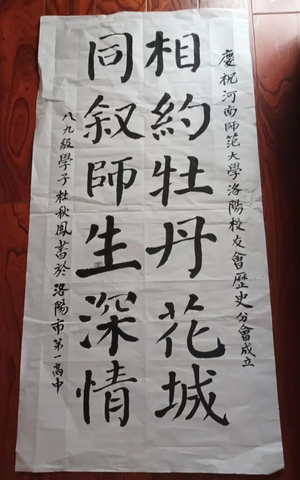 慶祝河南師范大學洛陽校友會歷史分會成立
相約牡丹花城
同叙師生深情
八九級學子杜秋鳳書於洛陽市第一高中